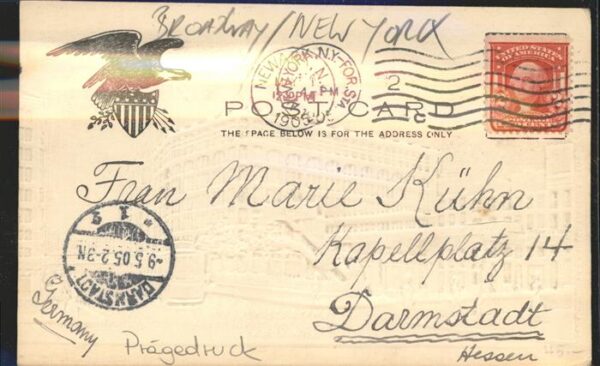 Broadway/NEW YORK
NEW YORK, N.Y.
UNITED STATES
OF AMERICA
2
POST CARD
THE SPACE BELOW IS FOR THE ADDRESS ONLY
Frau Marie Kühn
Kapellplatz 14
Darmstadt
Hessen
* 1 5
-9.5.05.2-3N.
DARMSTADT
Germany
Prägedruck